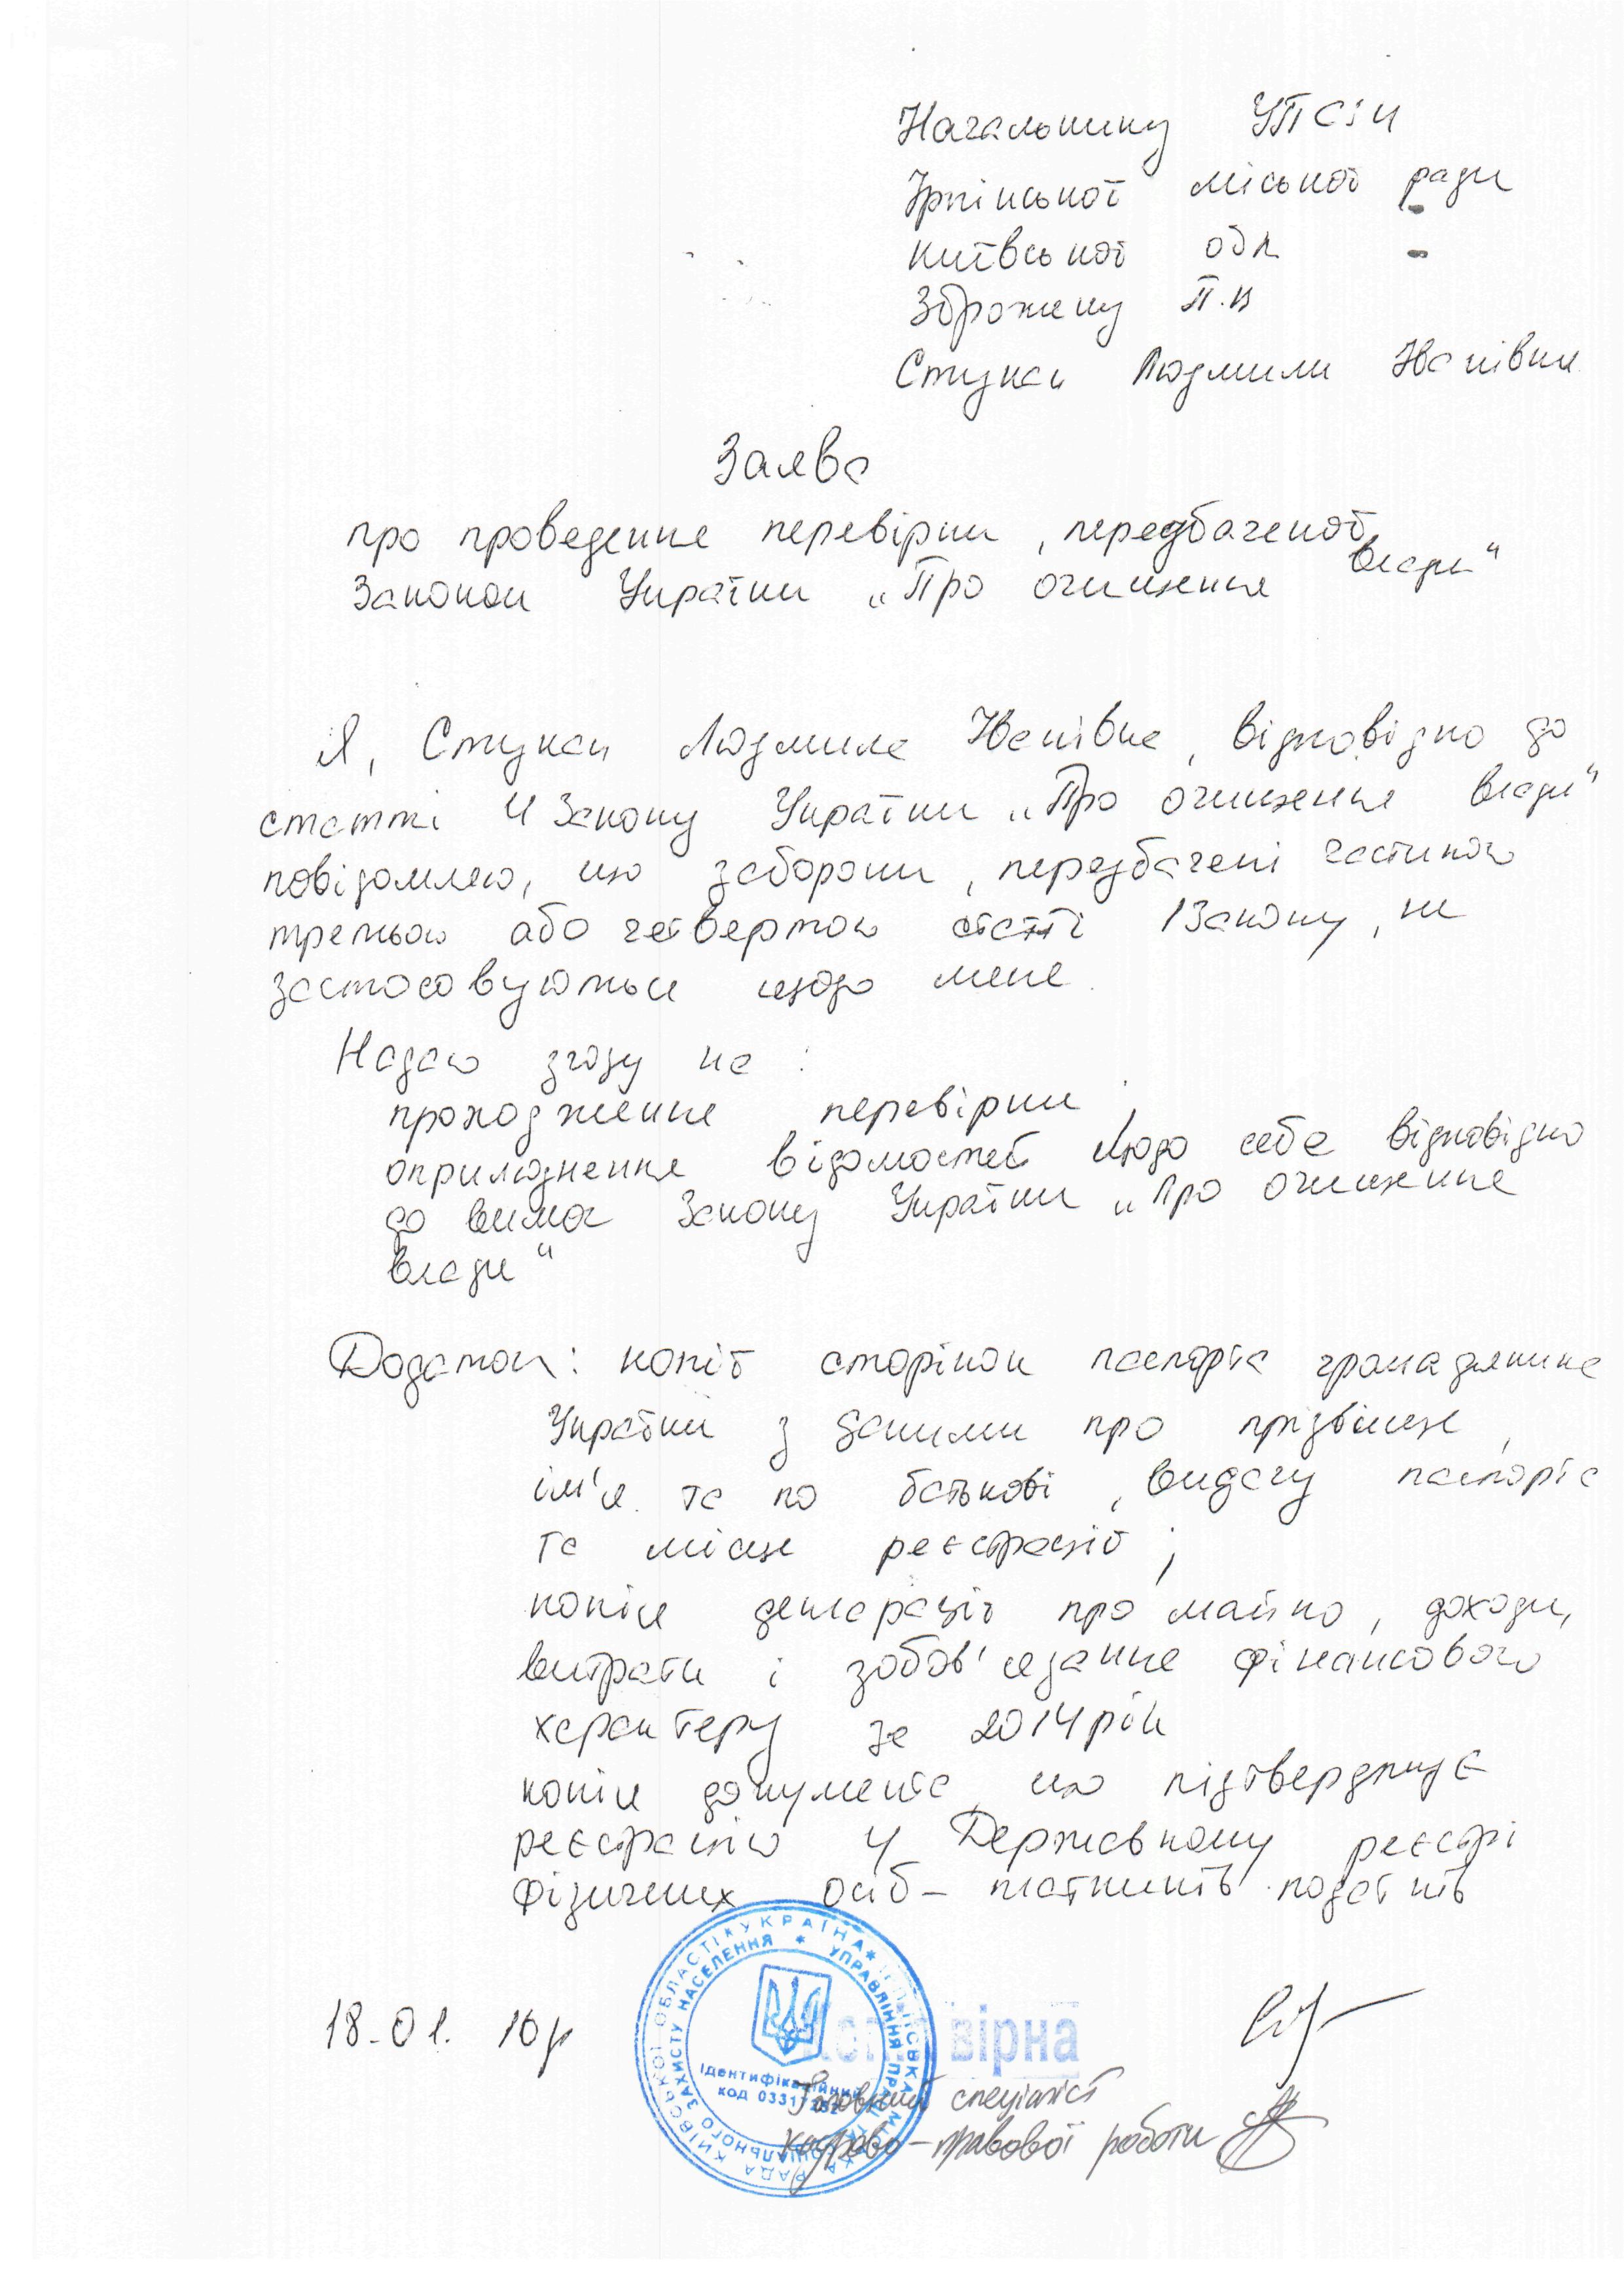 Начальнику УПСЗН
Ірпінської міської ради
Київської обл
Зброжеку П.В
Стукан Людмили Іванівни
Заява
про проведення перевірки, передбаченої
Законом України „Про очищення влади"
Я, Стукан Людмила Іванівна, відповідно до
статті 4 Закону України „Про очищення влади"
повідомляю, що заборони, передбачені частиною
третьою або четвертою статті 1 Закону, не
застосовуються щодо мене.
Надаю згоду на:
проходження перевірки;
оприлюднення відомостей щодо себе відповідно
до вимог Закону України „Про очищення
влади"
Додаток: копії сторінок паспорта громадянина
України з даними про прізвище,
ім'я та по батькові, видачу паспорта
та місце реєстрації;
копія декларації про майно, доходи,
витрати і зобов'язання фінансового
характеру за 2014 рік
копія документа, що підтверджує
реєстрацію у Державному реєстрі
фізичних осіб - платників податків
18.01. 16р
Копія вірна
УКРАЇНА * ІРПІНСЬКА МІСЬКА РАДА КИЇВСЬКОЇ ОБЛАСТІ *
УПРАВЛІННЯ ПРАЦІ ТА СОЦІАЛЬНОГО ЗАХИСТУ НАСЕЛЕННЯ *
Ідентифікаційний
код
Головний спеціаліст
кадрово-правової роботи